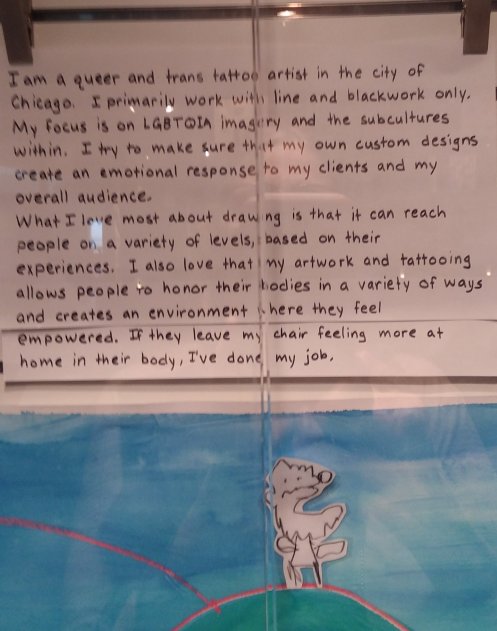 I am a queer and trans tattoo artist in the city of
Chicago. I primarily work with line and blackwork only.
My focus is on LGBTQIA imagery and the subcultures
within. I try to make sure that my own custom designs
create an emotional response to my clients and my
overall audience.
What I love most about drawing is that it can reach
people on a variety of levels, based on their
experiences. I also love that my artwork and tattooing
allows people to honor their bodies in a variety of ways
and creates an environment where they feel
empowered. If they leave my chair feeling more at
home in their body, I've done my job.